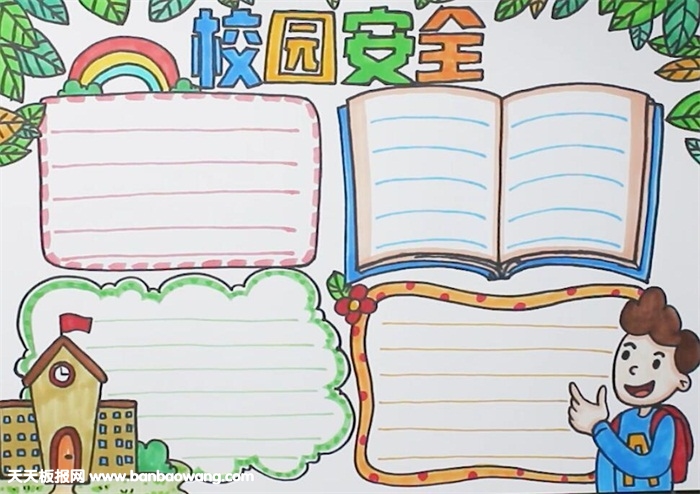 校园安全
A
天天板报网 www.banbaowang.com